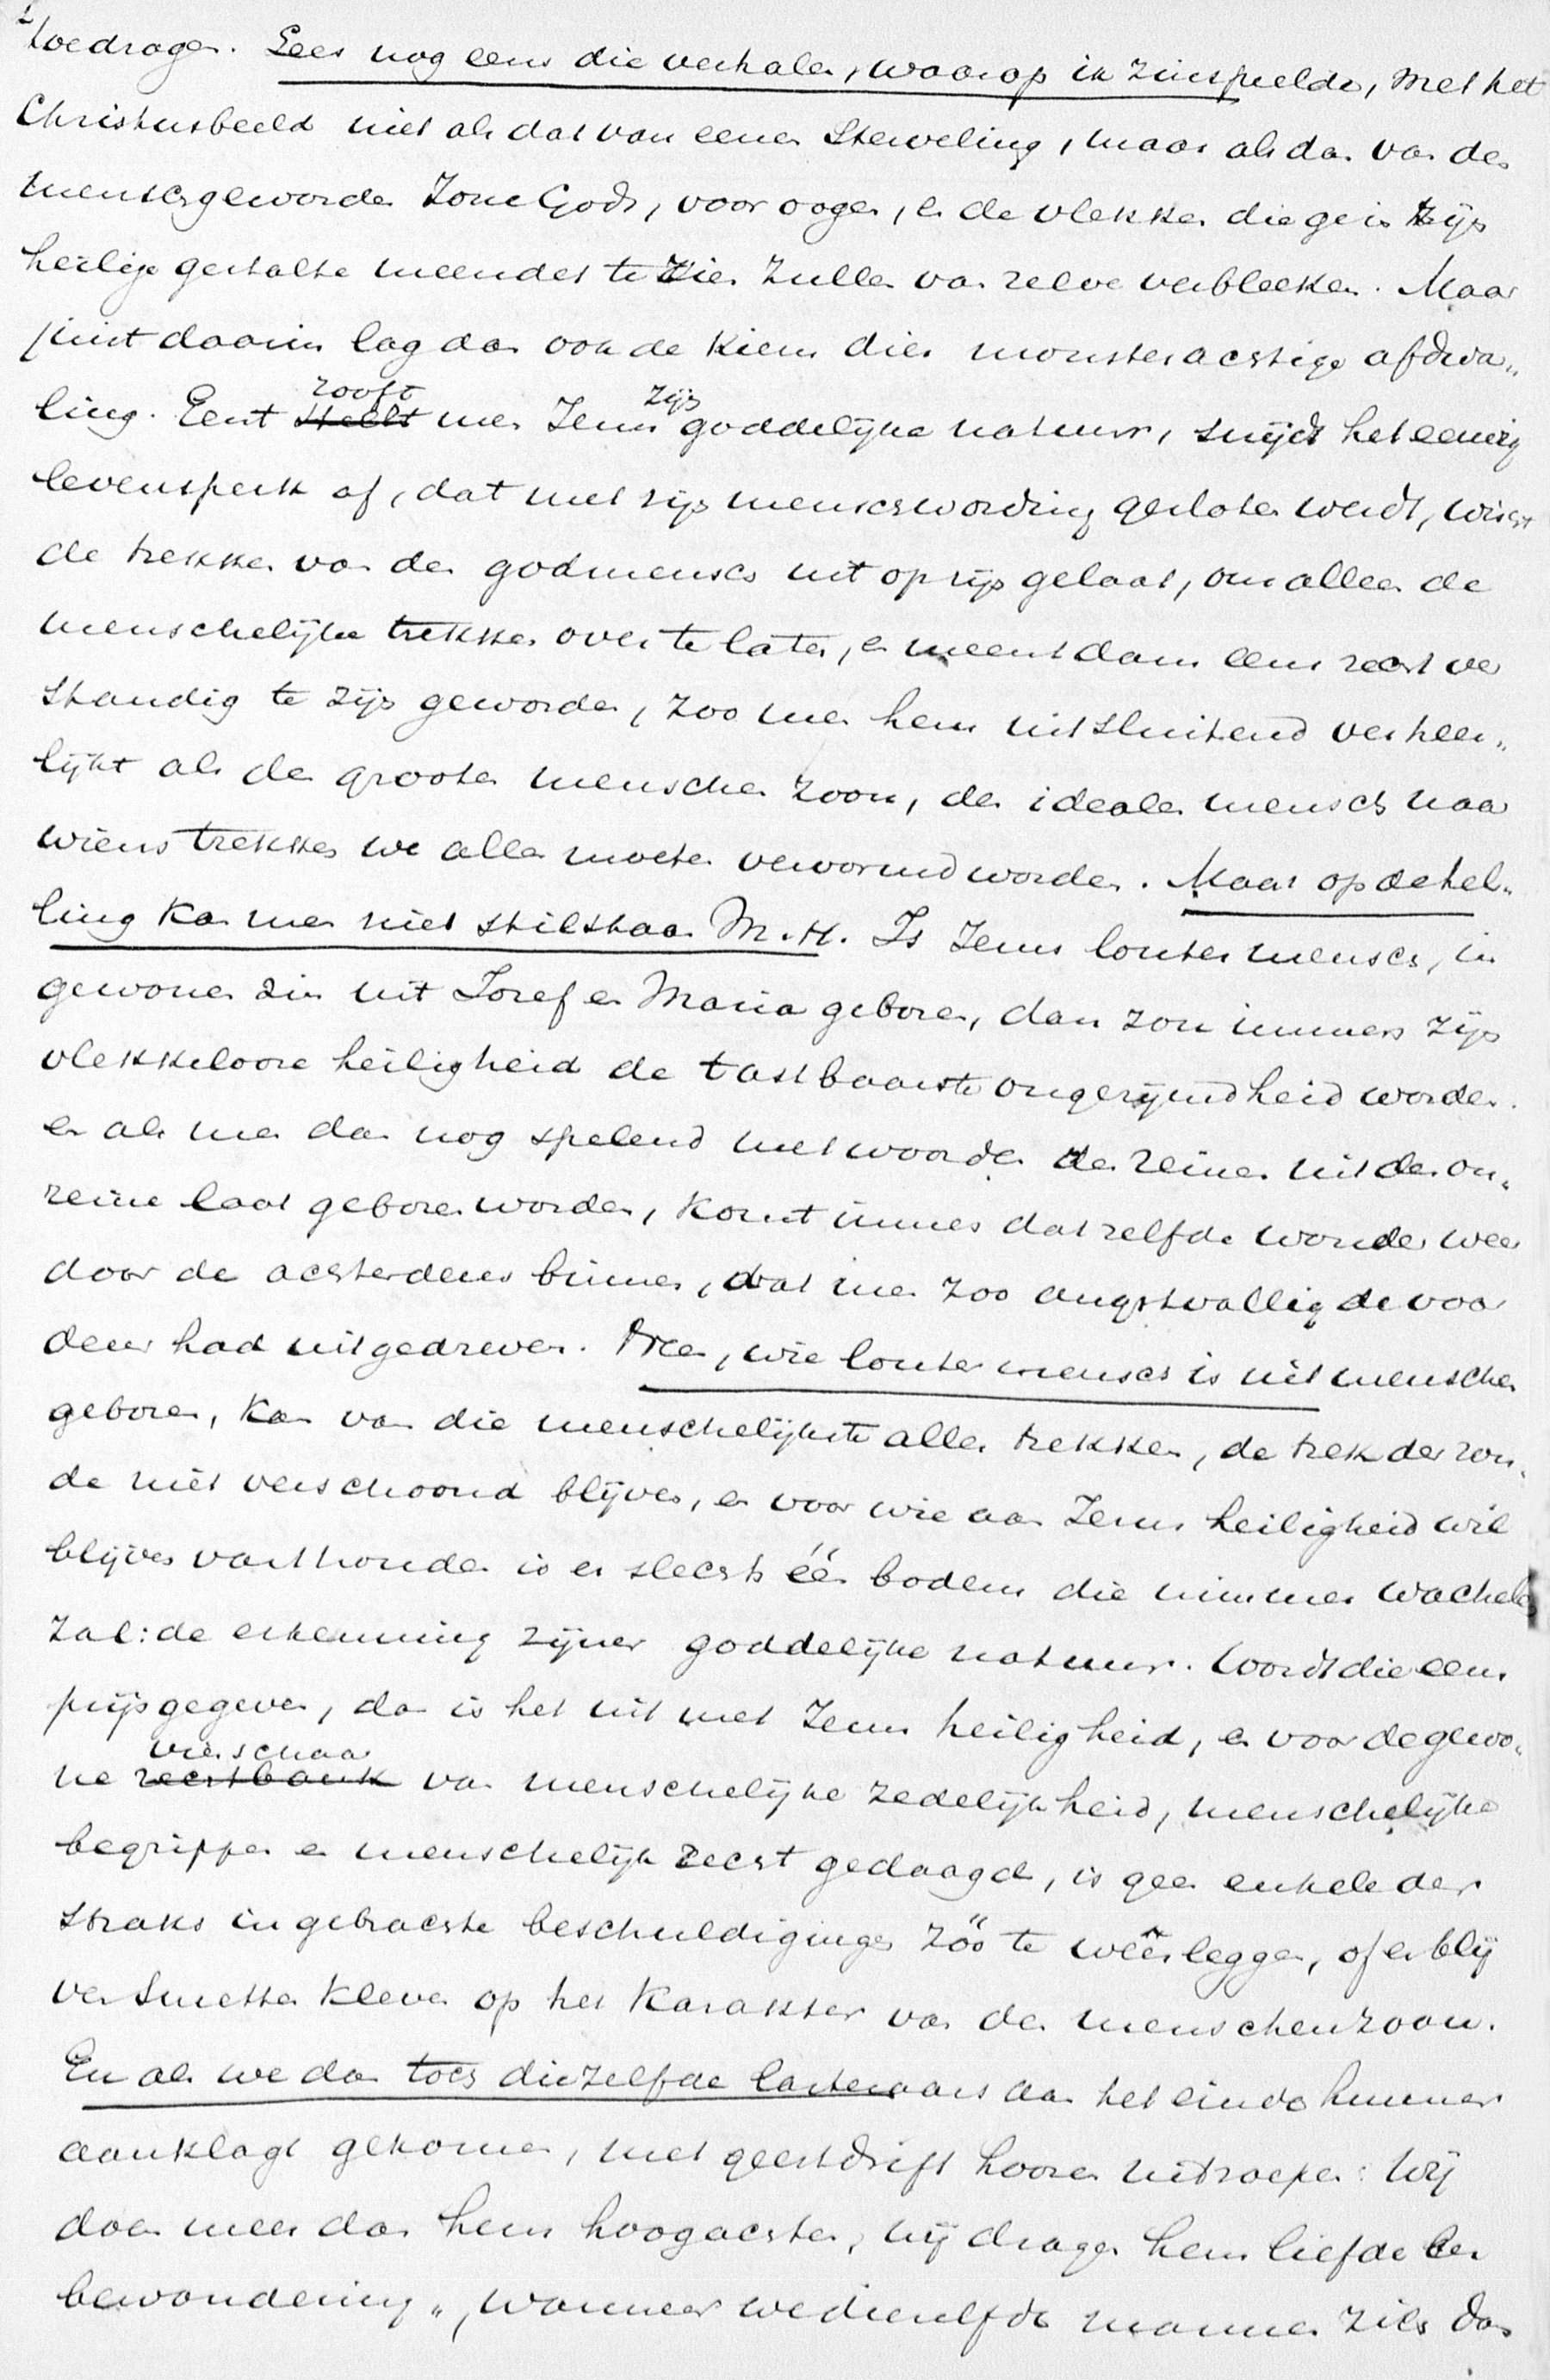 toedragen. Lees nog eens die verhalen, waarop ik zinspeelde, met het
Christusbeeld niet als dat van eenen sterveling, maar als dat van den
menschgeworden Zone Gods, voor oogen, en de vlekken die ge in zijn
heilige gestalte meendet te zien zullen van zelve verbleeken. Maar
juist daarin lag dan ook de kiem dier monsterachtige afdwa„
ling. Eerst rooft men Jezus zijn goddelijke natuur, snijdt het eeuwig
levensperk af, dat met zijn menschwording gesloten werdt, wischt
de trekken van den godmensch uit op zijn gelaat, om alleen de
menschelijke trekken over te laten, en meent dan eens recht ver
standig te zijn geworden, zoo men hem uitsluitend verheer„
lijkt als den grooten menschen zoon, den idealen mensch naar
wiens trekken we allen moeten vervormd worden. Maar op de hel„
ling kan men niet stilstaan M. H. Is Jezus louter mensch, in
gewonen zin uit Josef en Maria geboren, dan zou immers zijn
vlekkelooze heiligheid de tastbaarste ongerijmdheid worden.
en als men dan nog spelend met woorden den reinen uit den on„
reine laat geboren worden, komt immers datzelfde wonder weer
door de achterdeur binnen, dat men zoo angstvallig de voor
deur had uitgedreven. Neen, wie louter mensch is uit menschen
geboren, kan van die menschelijkste aller trekken, de trek der zon„
de niet verschoond blijven, en voor wie aan Jezus heiligheid wil
blijven vasthouden is er slechts één bodem die nimmer wachelen
zal: de erkenning zijner goddelijke natuur. Wordt die eens
prijsgegeven, dan is het uit met Jezus heiligheid, en voor de gewo„
ne vierschaar rechtbank van menschelijke zedelijkheid, menschelijke
begrippen en menschelijk recht gedaagd, is geen enkele der
straks ingebrachte beschuldigingen zóó te weêrleggen, of er blij
ven smetten kleven op het karakter van den menschenzoon.
En als we dan toch diezelfde lasteraars aan het einde hunner
aanklagt gekomen, met geestdrift hooren uitroepen: Wij
doen meer dan hem hoogachten, wij dragen hem liefde en
bewondering„, wanneer we diezelfde mannen zien dan